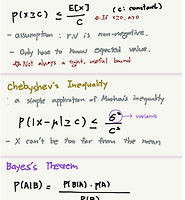 P(X≥c) ≤ E[X] / c (c: constant)
* If X≥0, a>0
- assumption : r.v is non-negative.
- Only have to know expected value.
* Not always a tight, useful bound
Chebyshev's Inequality
- a simple application of Markov's inequality
P(|X-μ|≥c) ≤ σ² / c² → variance
- X can't be too far from the mean
Bayes's Theorem
P(A|B) = P(B|A)·P(A) / P(B)